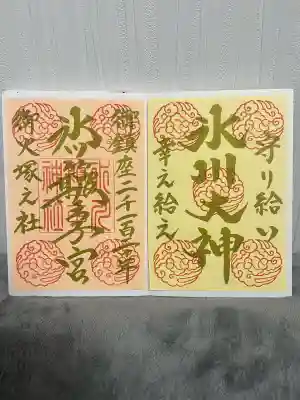 守り給い
氷川大神
幸え給え
御鎮座二千一百年
氷川簸王子宮
御火塚之社